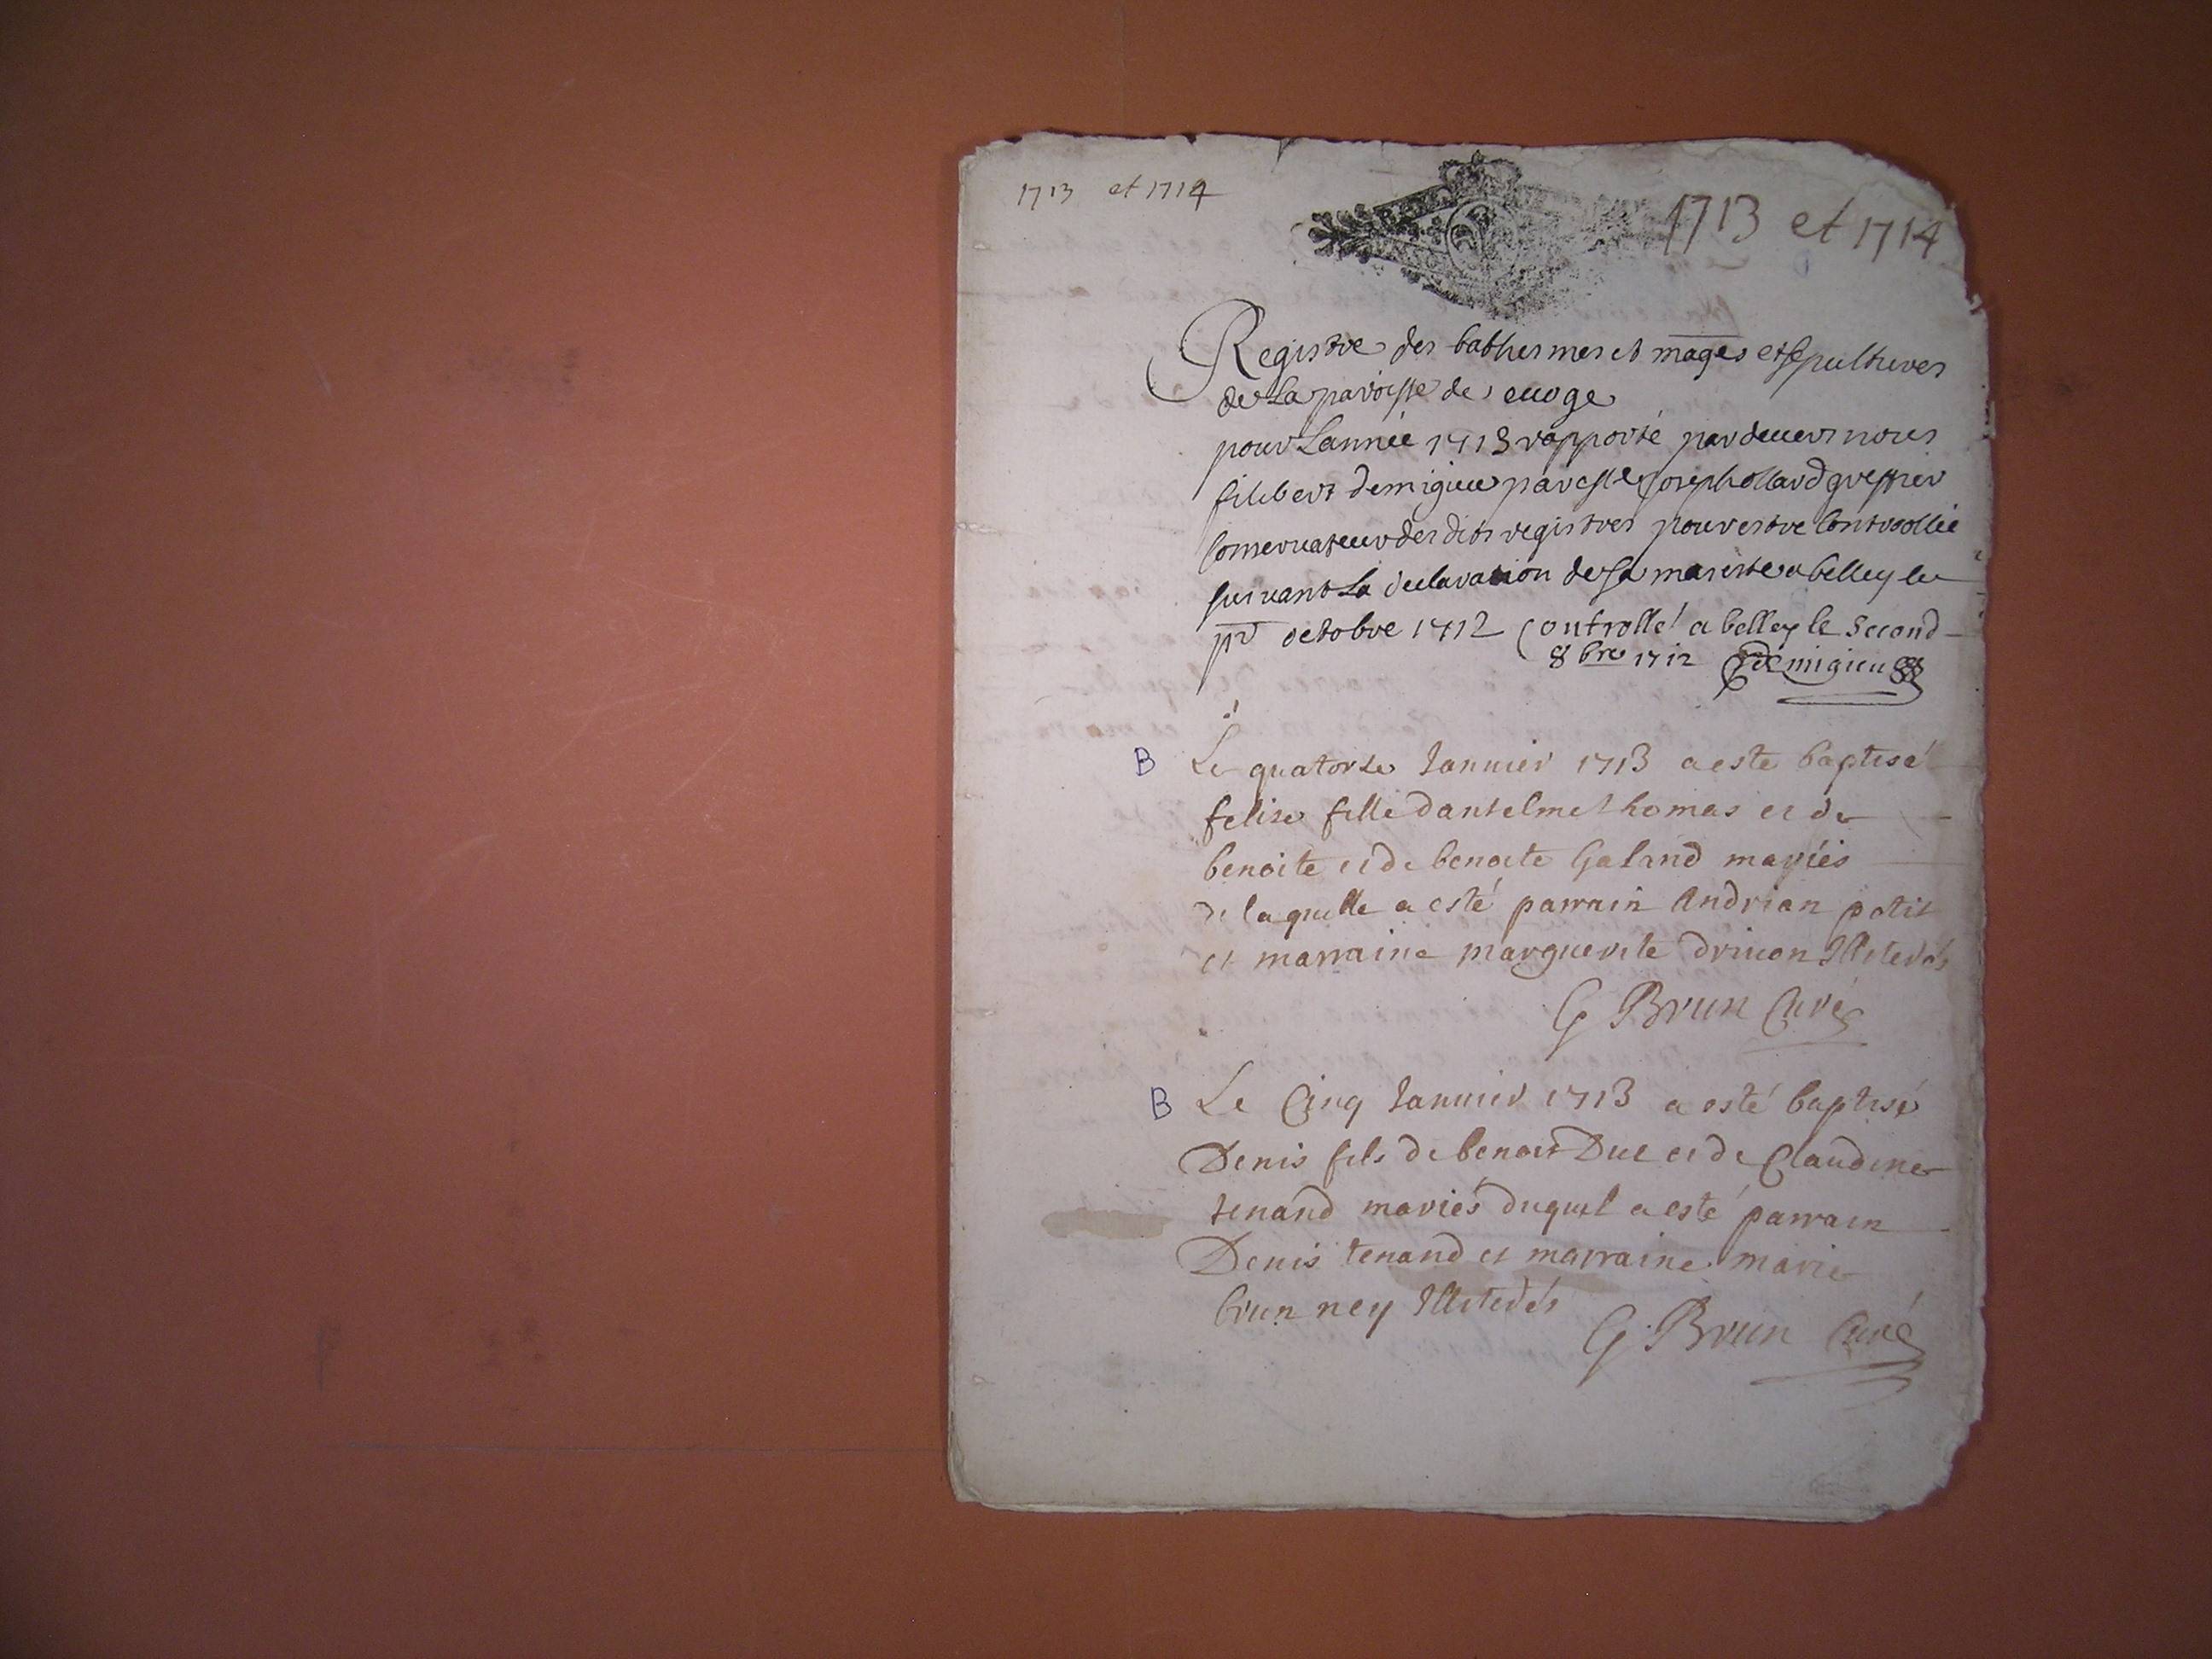 1713 et 1714
1713 et 1714
Registre des bathesmes et mages et sepultures
de la paroisse de euoge
pour Lannée 1713 rapporté pardeuers nous
filibert demigieu par messe Joseph ollard greffier
Conseruateur des dits registres pour estre Controollée
suiuant La declaration de sa maieste a belley le
pr octobre 1712 Controllé a belley le second
8bre 1712 Demigieu
B Le quatorse Januier 1713 a este baptisé
felise fille dantelme thomas et de
benoite et de benoite Galand mariés
de laquelle a esté parrain Andrian petit
et marraine marguerite driuon Illiterés
G Brun Curé
B Le Cinq Januier 1713 a esté baptisé
Denis fils de benoit Duc et de Claudine
tenand mariés duquel a esté parrain
Denis tenand et marraine marie
brun ney Illiterés
G. Brun Curé